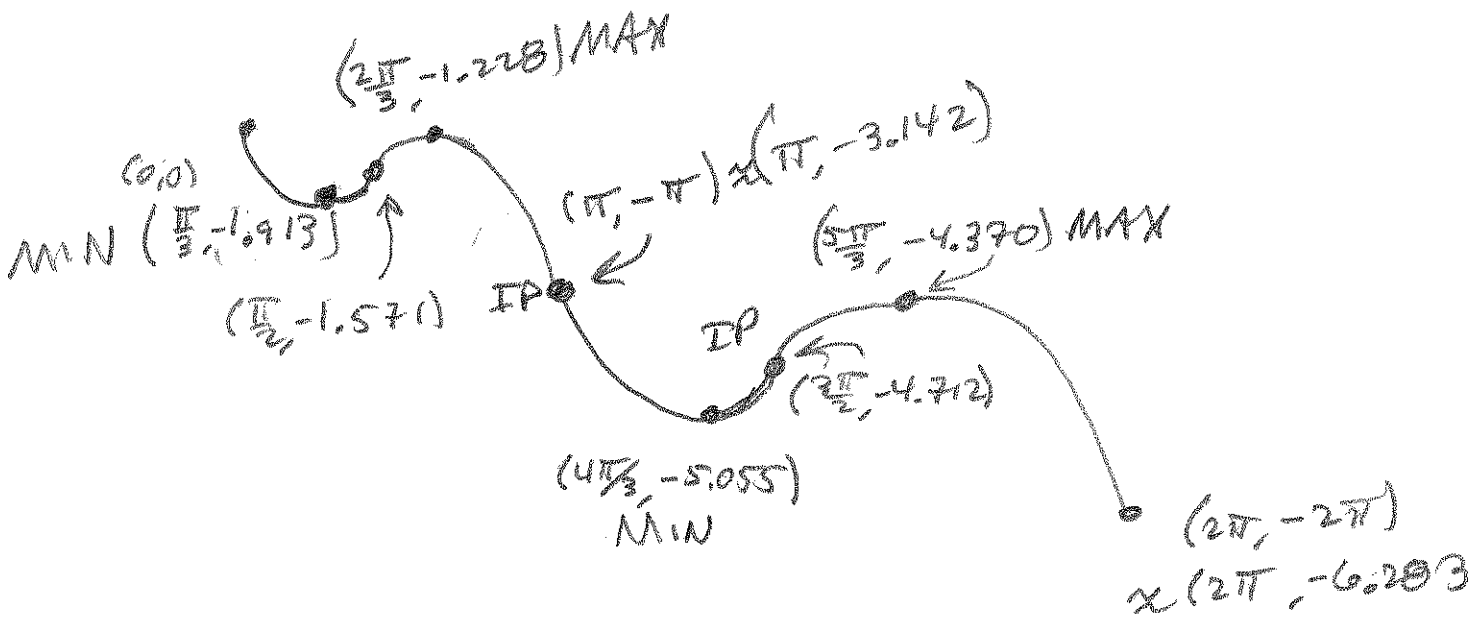 (2π/3, -1.228) MAX
(0,0)
MIN (π/3, -1.913)
(π/2, -1.571)
IP
(π, -π) ≈ (π, -3.142)
(5π/3, -4.370) MAX
IP
(3π/2, -4.712)
(4π/3, -5.055)
MIN
(2π, -2π)
≈ (2π, -6.283